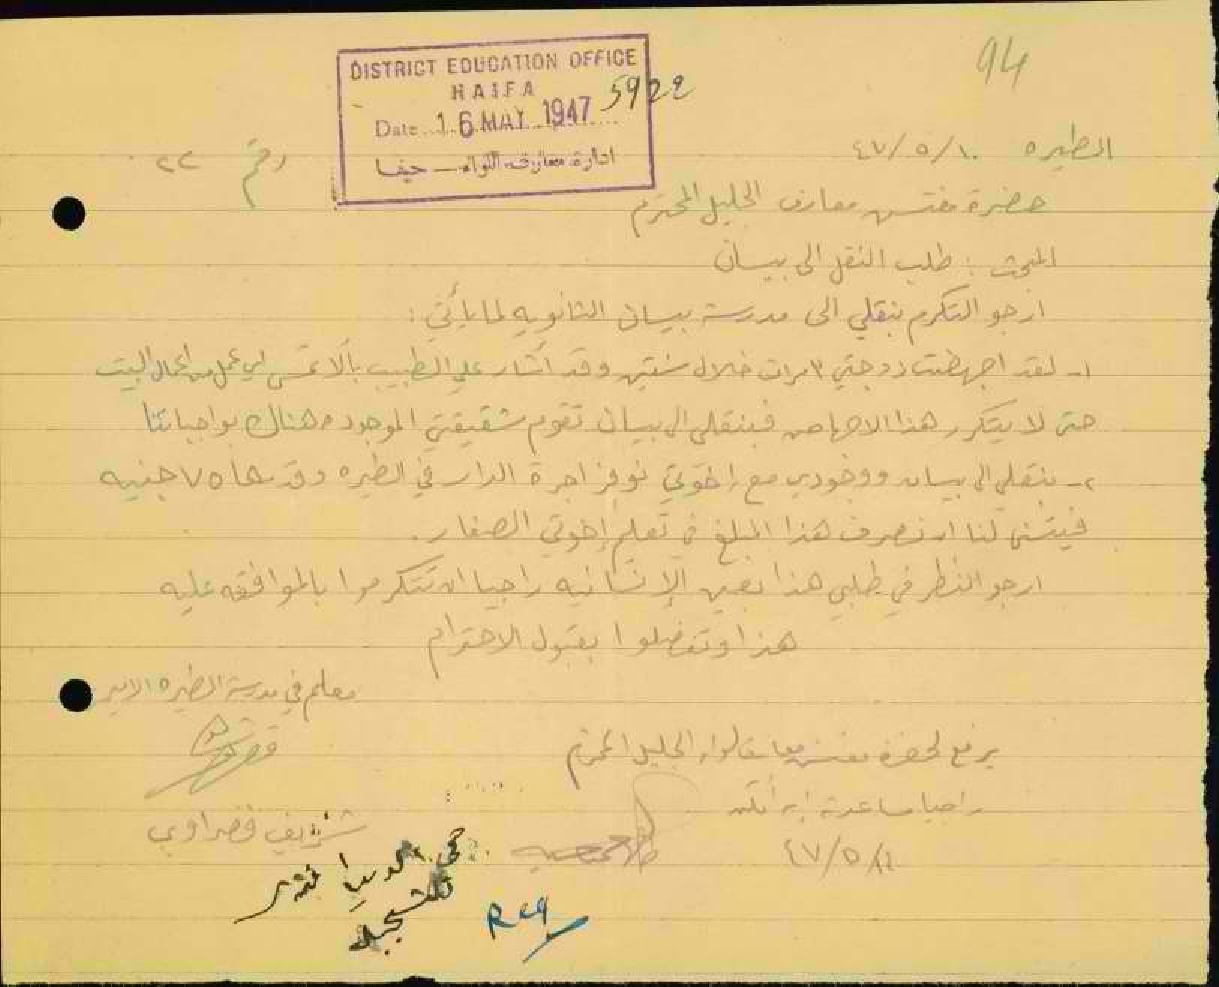 94
DISTRICT EDUCATION OFFICE
HAIFA
5922
Date 16 MAY 1947
ادارة معارف اللواء - حيفا
الطيره ١٠/٥/٤٧
رقم ٢٢
حضرة مفتش معارف الجليل المحترم
المبحث : طلب النقل الى بيسان
ارجو التكرم بنقلي الى مدرسة بيسان الثانويه لما يأتي :
١- لقد اجهضت زوجتي ٣ مرات خلال سنتين وقد أشار علي الطبيب بألا تمس اي عمل من اعمال البيت
حتى لا يتكرر هذا الاجهاض فبنقلي الى بيسان تقوم شقيقتي الموجوده هناك بواجباتنا
٢- بنقلي الى بيسان ووجودي مع إخوتي نوفر اجرة الدار في الطيره وقدرها ٧٥ جنيه
فيتسنى لنا ان نصرف هذا المبلغ في تعلم إخوتي الصغار .
ارجو النظر في طلبي هذا بعين الإنسانيه راجيا ان تتكرموا بالموافقه عليه
هذا وتفضلوا بقبول الاحترام
معلم في مدرسة الطيره الاميرية
شريف قصراوي
يرفع لحضرة مفتش معارف لواء الجليل المحترم
راجيا مساعدته إن أمكن
٤٧/٥/١٢
للتسجيل
Reg